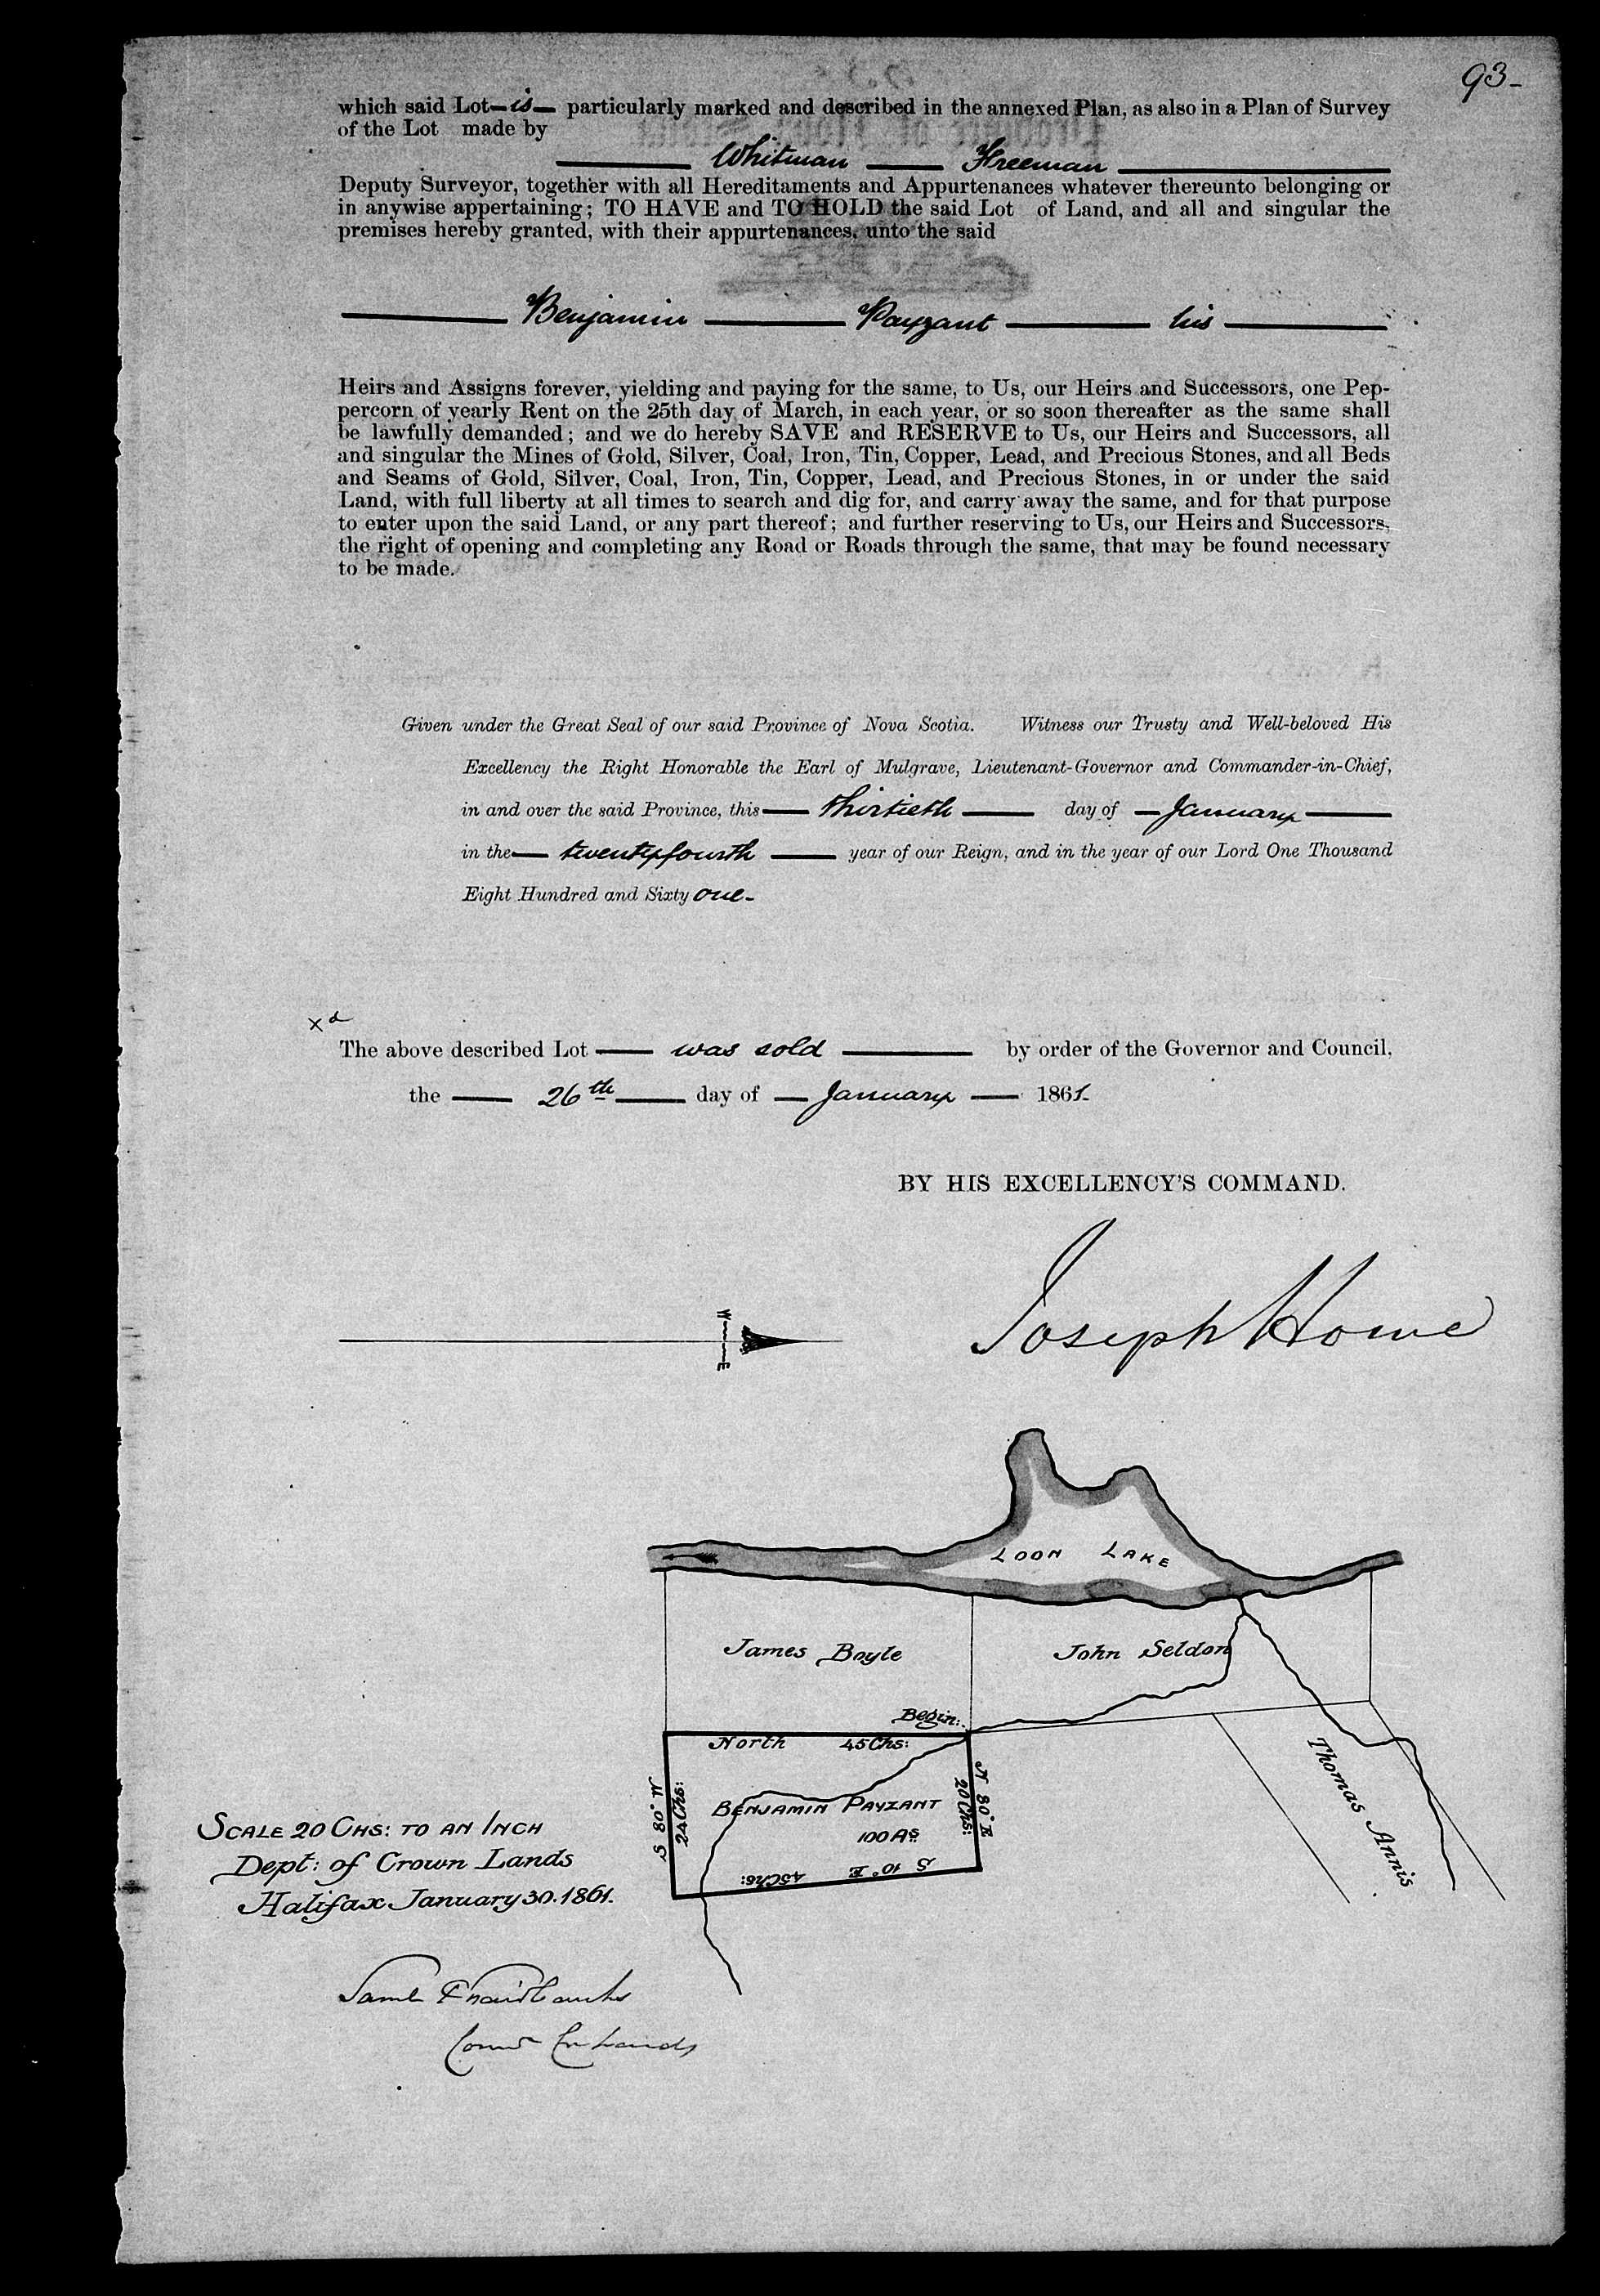 93-
which said Lot is particularly marked and described in the annexed Plan, as also in a Plan of Survey
of the Lot made by
Whitman Freeman
Deputy Surveyor, together with all Hereditaments and Appurtenances whatever thereunto belonging or
in anywise appertaining; TO HAVE and TO HOLD the said Lot of Land, and all and singular the
premises hereby granted, with their appurtenances, unto the said
Benjamin Payzant his
Heirs and Assigns forever, yielding and paying for the same, to Us, our Heirs and Successors, one Pep-
percorn of yearly Rent on the 25th day of March, in each year, or so soon thereafter as the same shall
be lawfully demanded; and we do hereby SAVE and RESERVE to Us, our Heirs and Successors, all
and singular the Mines of Gold, Silver, Coal, Iron, Tin, Copper, Lead, and Precious Stones, and all Beds
and Seams of Gold, Silver, Coal, Iron, Tin, Copper, Lead, and Precious Stones, in or under the said
Land, with full liberty at all times to search and dig for, and carry away the same, and for that purpose
to enter upon the said Land, or any part thereof; and further reserving to Us, our Heirs and Successors,
the right of opening and completing any Road or Roads through the same, that may be found necessary
to be made.
Given under the Great Seal of our said Province of Nova Scotia. Witness our Trusty and Well-beloved His
Excellency the Right Honorable the Earl of Mulgrave, Lieutenant-Governor and Commander-in-Chief,
in and over the said Province, this thirtieth day of January
in the twenty fourth year of our Reign, and in the year of our Lord One Thousand
Eight Hundred and Sixty one-
xd
The above described Lot was sold by order of the Governor and Council,
the 26th day of January 1861-
BY HIS EXCELLENCY'S COMMAND.
Joseph Howe
W E
LOON LAKE
James Boyle
John Seldon
Begin:
North 45 Chs:
N 80° E
20 Chs:
S 80° W
24 Chs:
BENJAMIN PAYZANT
100 As
S 10° E 45 Chs:
Thomas Annis
SCALE 20 CHS: TO AN INCH
Dept: of Crown Lands
Halifax January 30. 1861.
Saml P Fairbanks
Comr Cn Lands